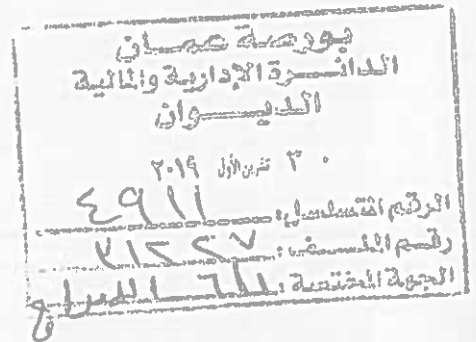 بورصة عمان
الدائرة الإدارية والمالية
الديوان
٣٠ تشرين الأول ٢٠١٩
الرقم المتسلسل: ٤٩١١
رقم الملف:
الجهة المختصة: